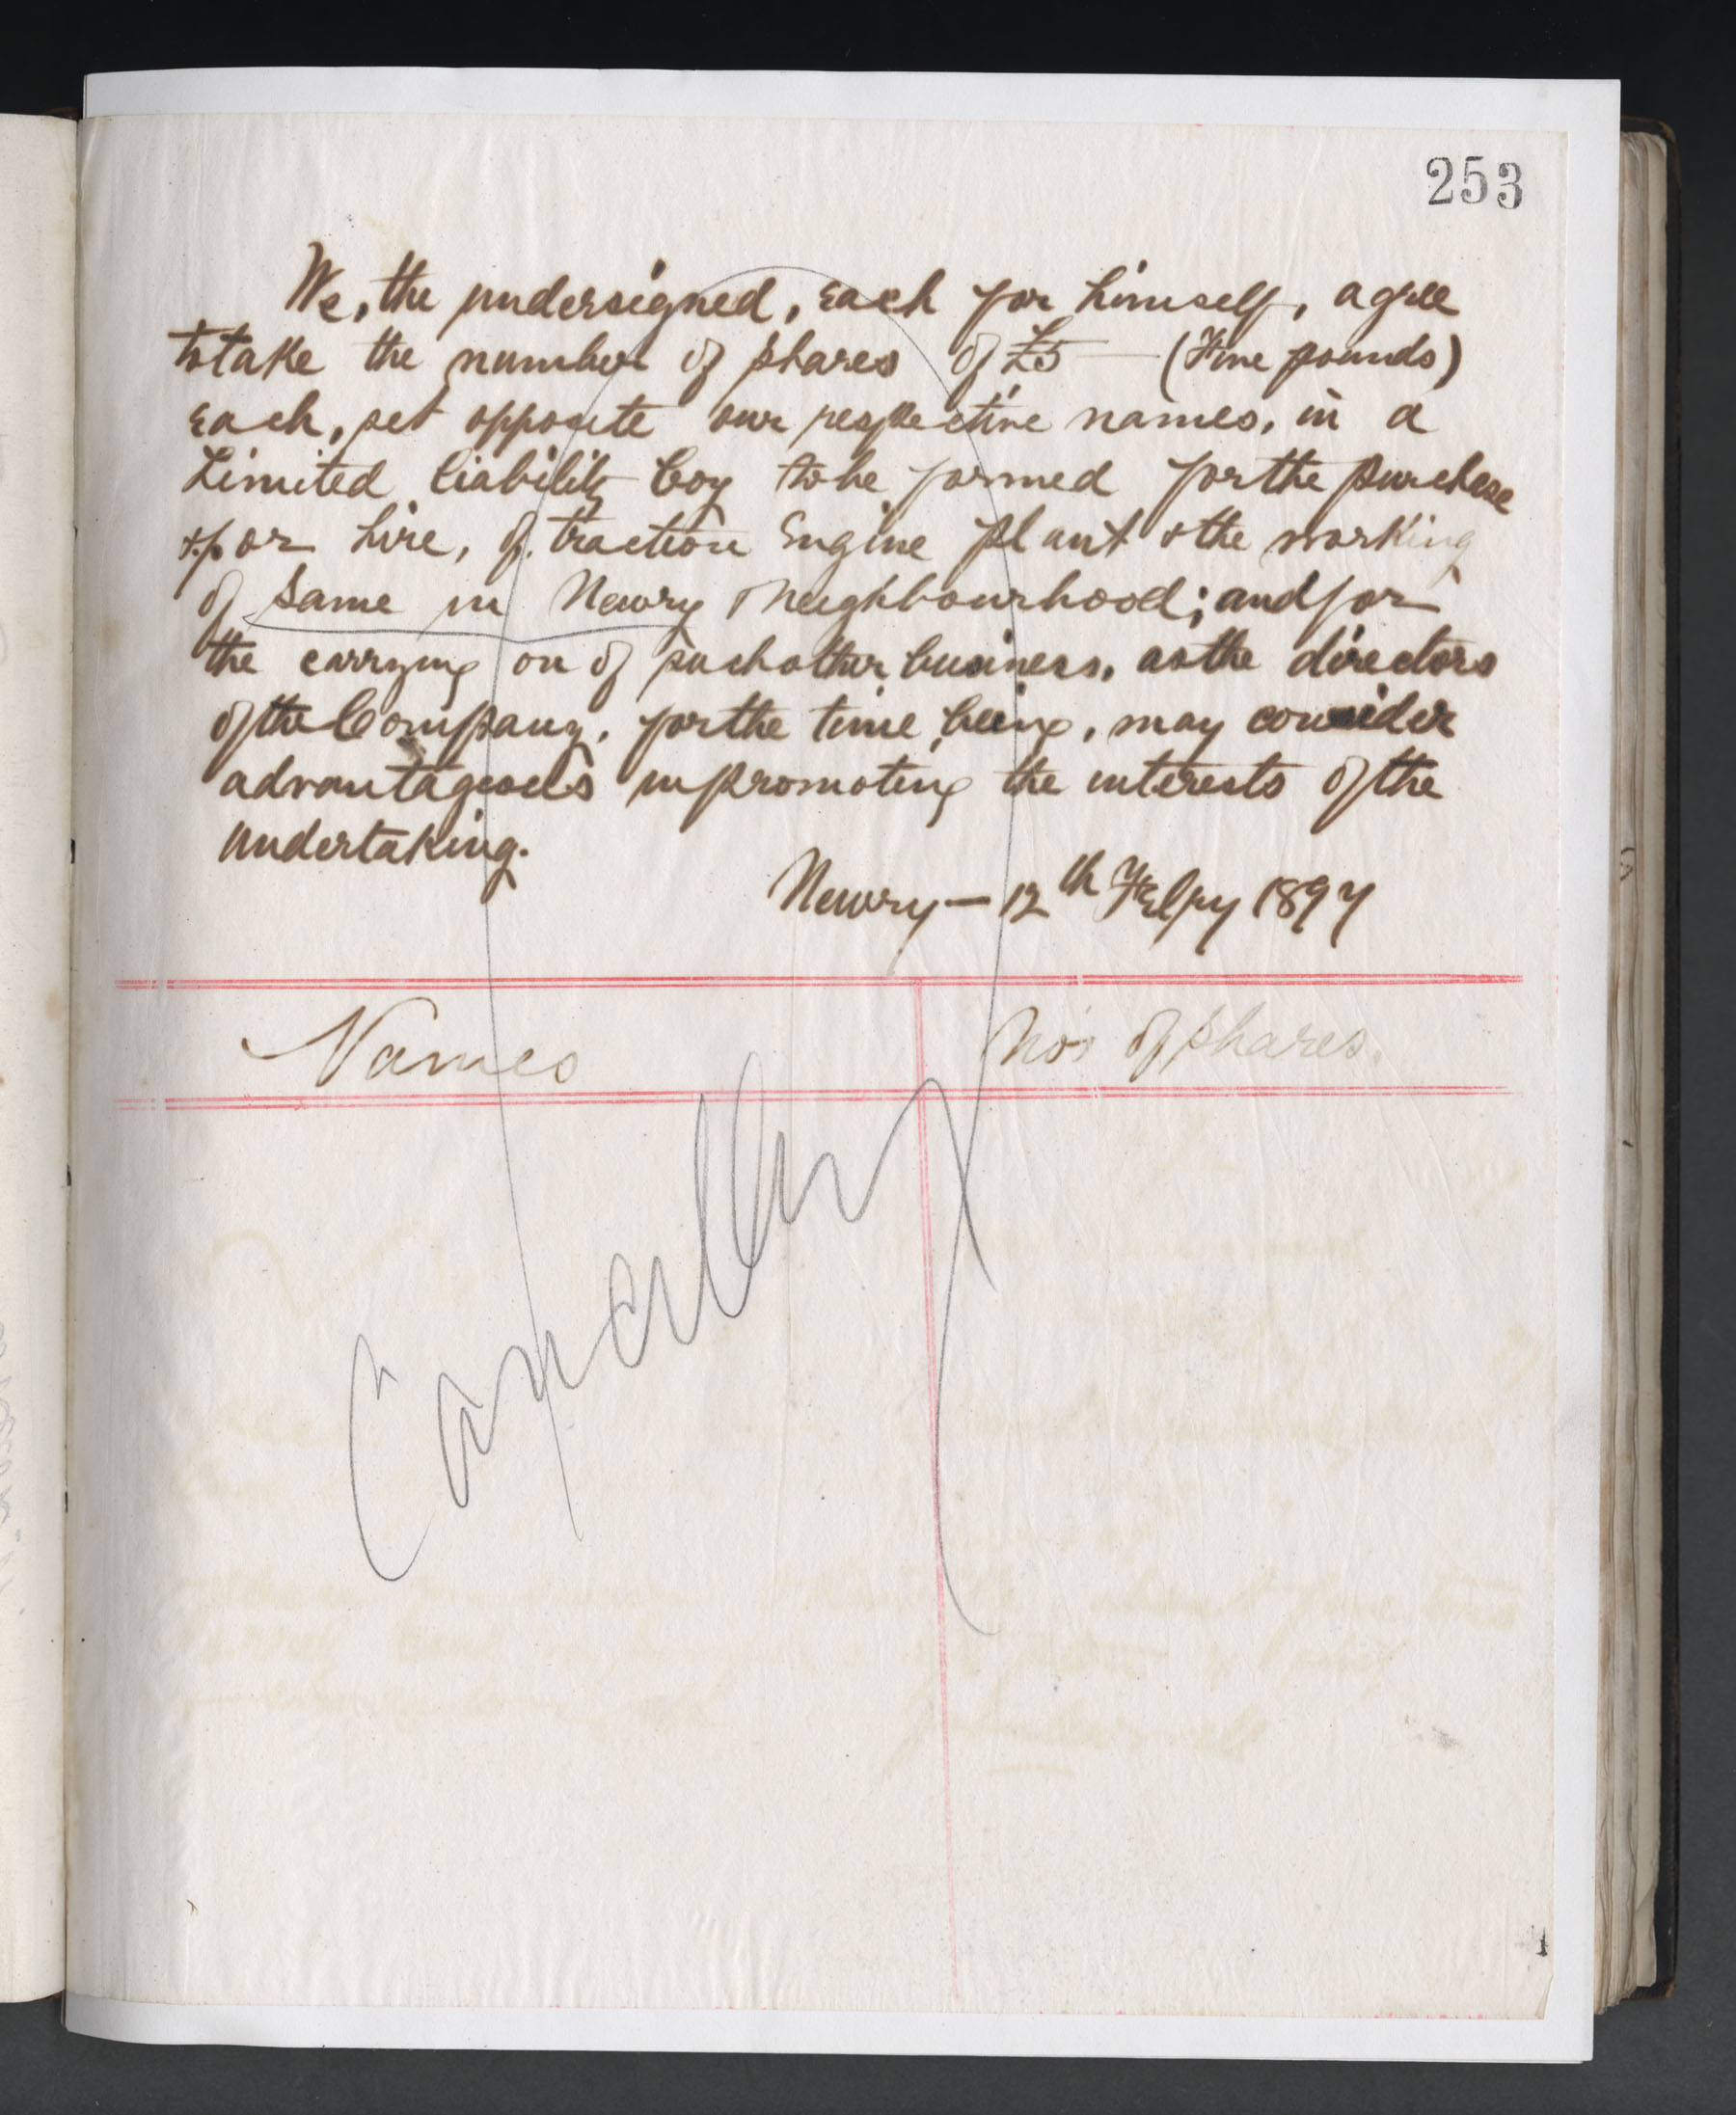 253
We, the undersigned, each for himself, agree
to take the number of shares of £5 — (Five pounds)
each, set opposite our respective names, in a
Limited liability Coy to be formed for the purchase
& for hire, of traction Engine plant & the working
of same in Newry Neighbourhood; and for
the carrying on of such other business, as the directors
of the Company, for the time being, may consider
advantageous in promoting the interests of the
undertaking.
Newry — 12th Feby 1897
Names
No's of shares.